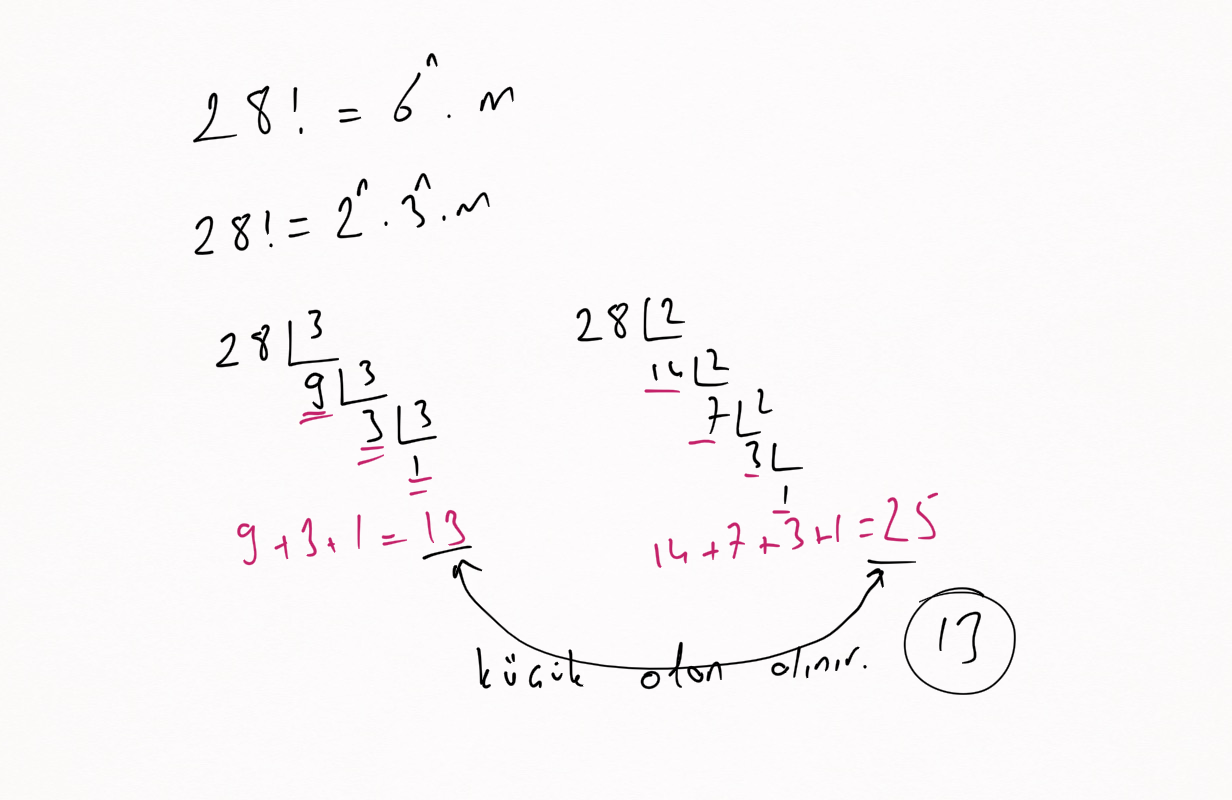 28! = 6^n . m
28! = 2^n . 3^n . m
28 3
9 3
3 3
1
9 + 3 + 1 = 13
28 2
14 2
7 2
3
1
14 + 7 + 3 + 1 = 25
küçük olan alınır.
13